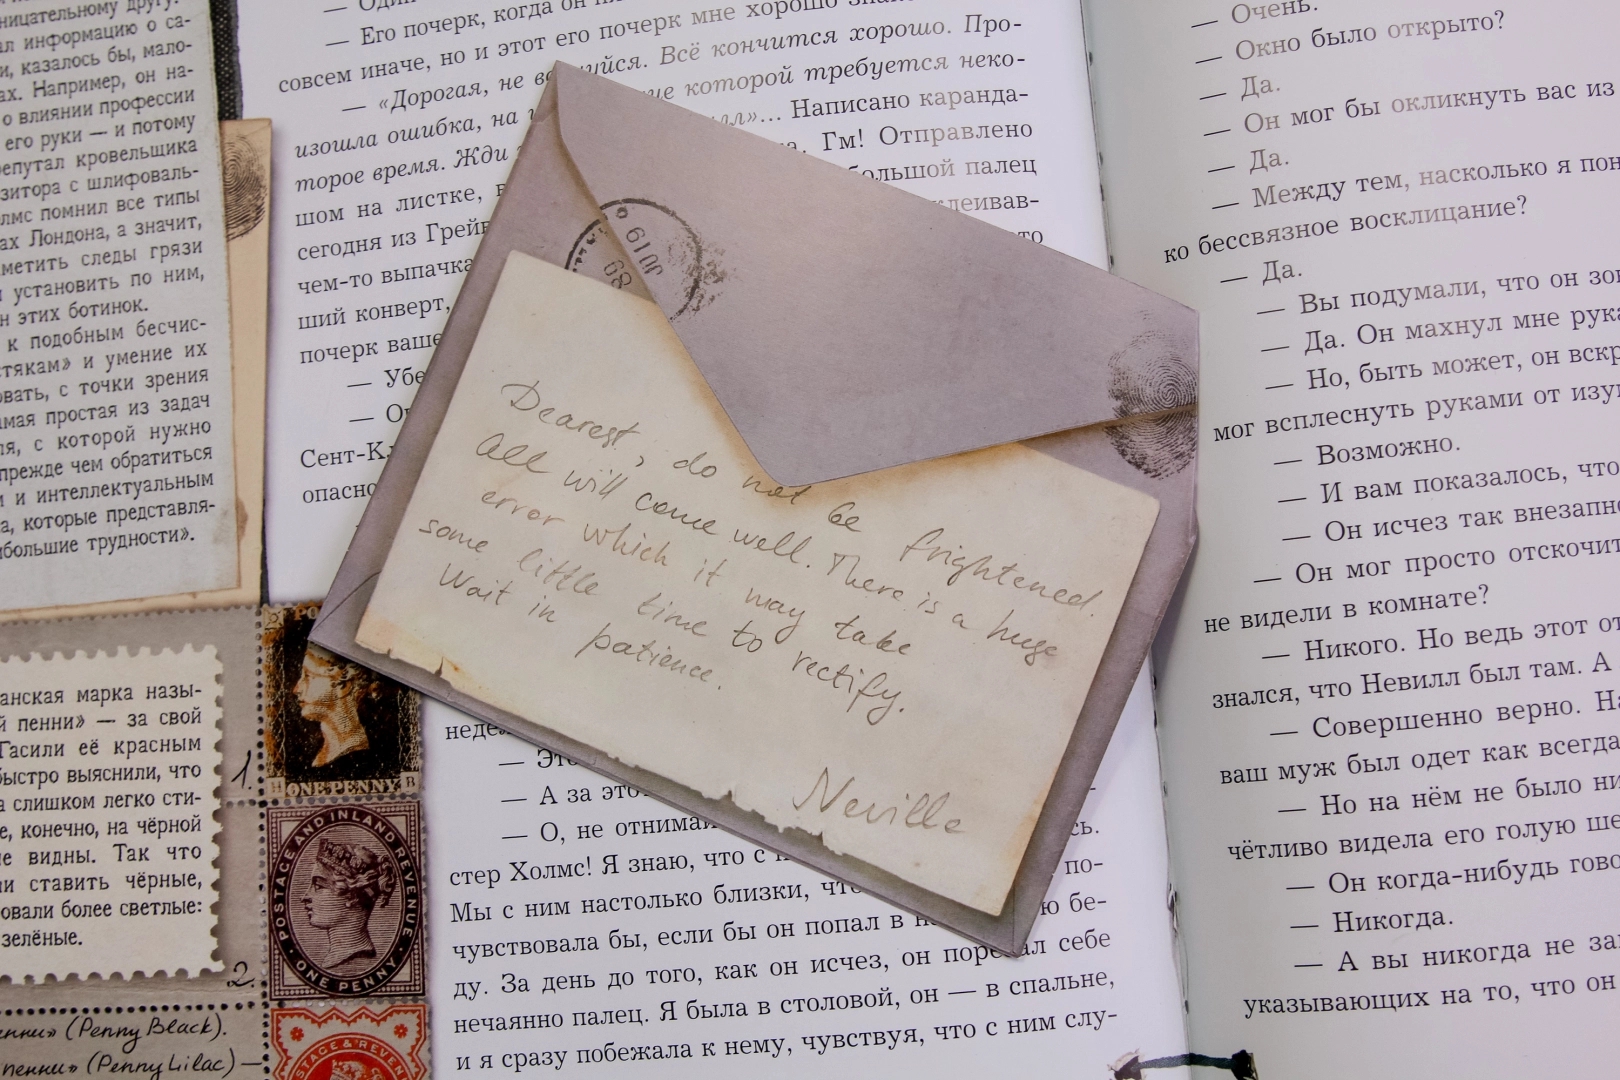 ницательному другу.
ал информацию о са-
и, казалось бы, мало-
ах. Например, он на-
о влиянии профессии
его руки — и потому
репутал кровельщика
зитора с шлифоваль-
олмс помнил все типы
ах Лондона, а значит,
метить следы грязи
и установить по ним,
н этих ботинок.
к подобным бесчис-
стякам» и умение их
овать, с точки зрения
амая простая из задач
ля, с которой нужно
прежде чем обратиться
и и интеллектуальным
а, которые представля-
ибольшие трудности».
анская марка назы-
й пенни» — за свой
Гасили её красным
быстро выяснили, что
а слишком легко сти-
е, конечно, на чёрной
не видны. Так что
ли ставить чёрные,
овали более светлые:
зелёные.
1.
2.
енни» (Penny Black).
пенни» (Penny Lilac) —
ONE PENNY
POSTAGE AND INLAND REVENUE
ONE PENNY
— Один
— Его почерк, когда он
совсем иначе, но и этот его почерк мне хорошо
— «Дорогая, не волнуйся. Всё кончится хорошо. Про-
изошла ошибка, на которой требуется неко-
торое время. Жди Написано каранда-
шом на листке, Гм! Отправлено
сегодня из большой палец
чем-то выпачка
ший конверт,
почерк ваше
— Убе
Сент-Кл
опасно
JU 19
89
Dearest, do not be frightened.
All will come well. There is a huge
error which it may take
some little time to rectify.
Wait in patience.
Neville
неде
— Эт
— А за это
— О, не отнимай сь.
стер Холмс! Я знаю, что с по-
Мы с ним настолько близки, что ю бе-
чувствовала бы, если бы он попал в
ду. За день до того, как он исчез, он порезал себе
нечаянно палец. Я была в столовой, он — в спальне,
и я сразу побежала к нему, чувствуя, что с ним слу-
— Очень.
— Окно было открыто?
— Да.
— Он мог бы окликнуть вас из
— Да.
— Между тем, насколько я пон
ко бессвязное восклицание?
— Да.
— Вы подумали, что он зов
— Да. Он махнул мне рука
— Но, быть может, он вскр
мог всплеснуть руками от изум
— Возможно.
— И вам показалось, что
— Он исчез так внезапно
— Он мог просто отскочит
не видели в комнате?
— Никого. Но ведь этот от
знался, что Невилл был там. А
— Совершенно верно. На
ваш муж был одет как всегда
— Но на нём не было ни
чётливо видела его голую ше
— Он когда-нибудь гово
— Никогда.
— А вы никогда не за
указывающих на то, что он